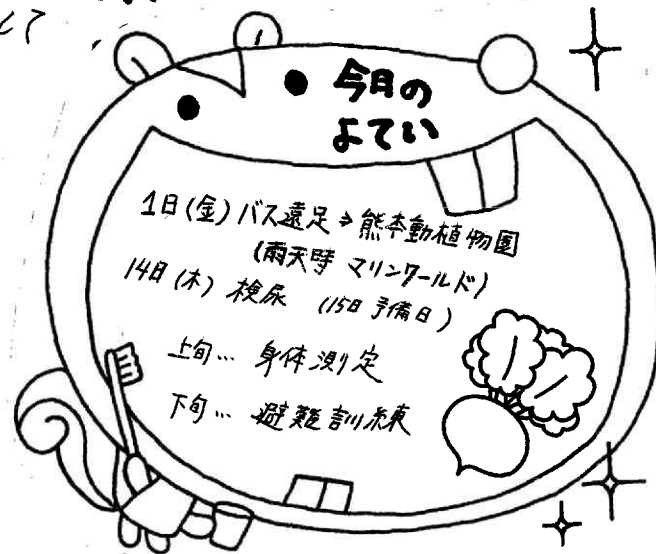 今月の
よてい
1日(金) バス遠足→熊本動植物園
(雨天時 マリンワールド)
14日(木) 検尿 (15日予備日)
上旬… 身体測定
下旬… 避難訓練